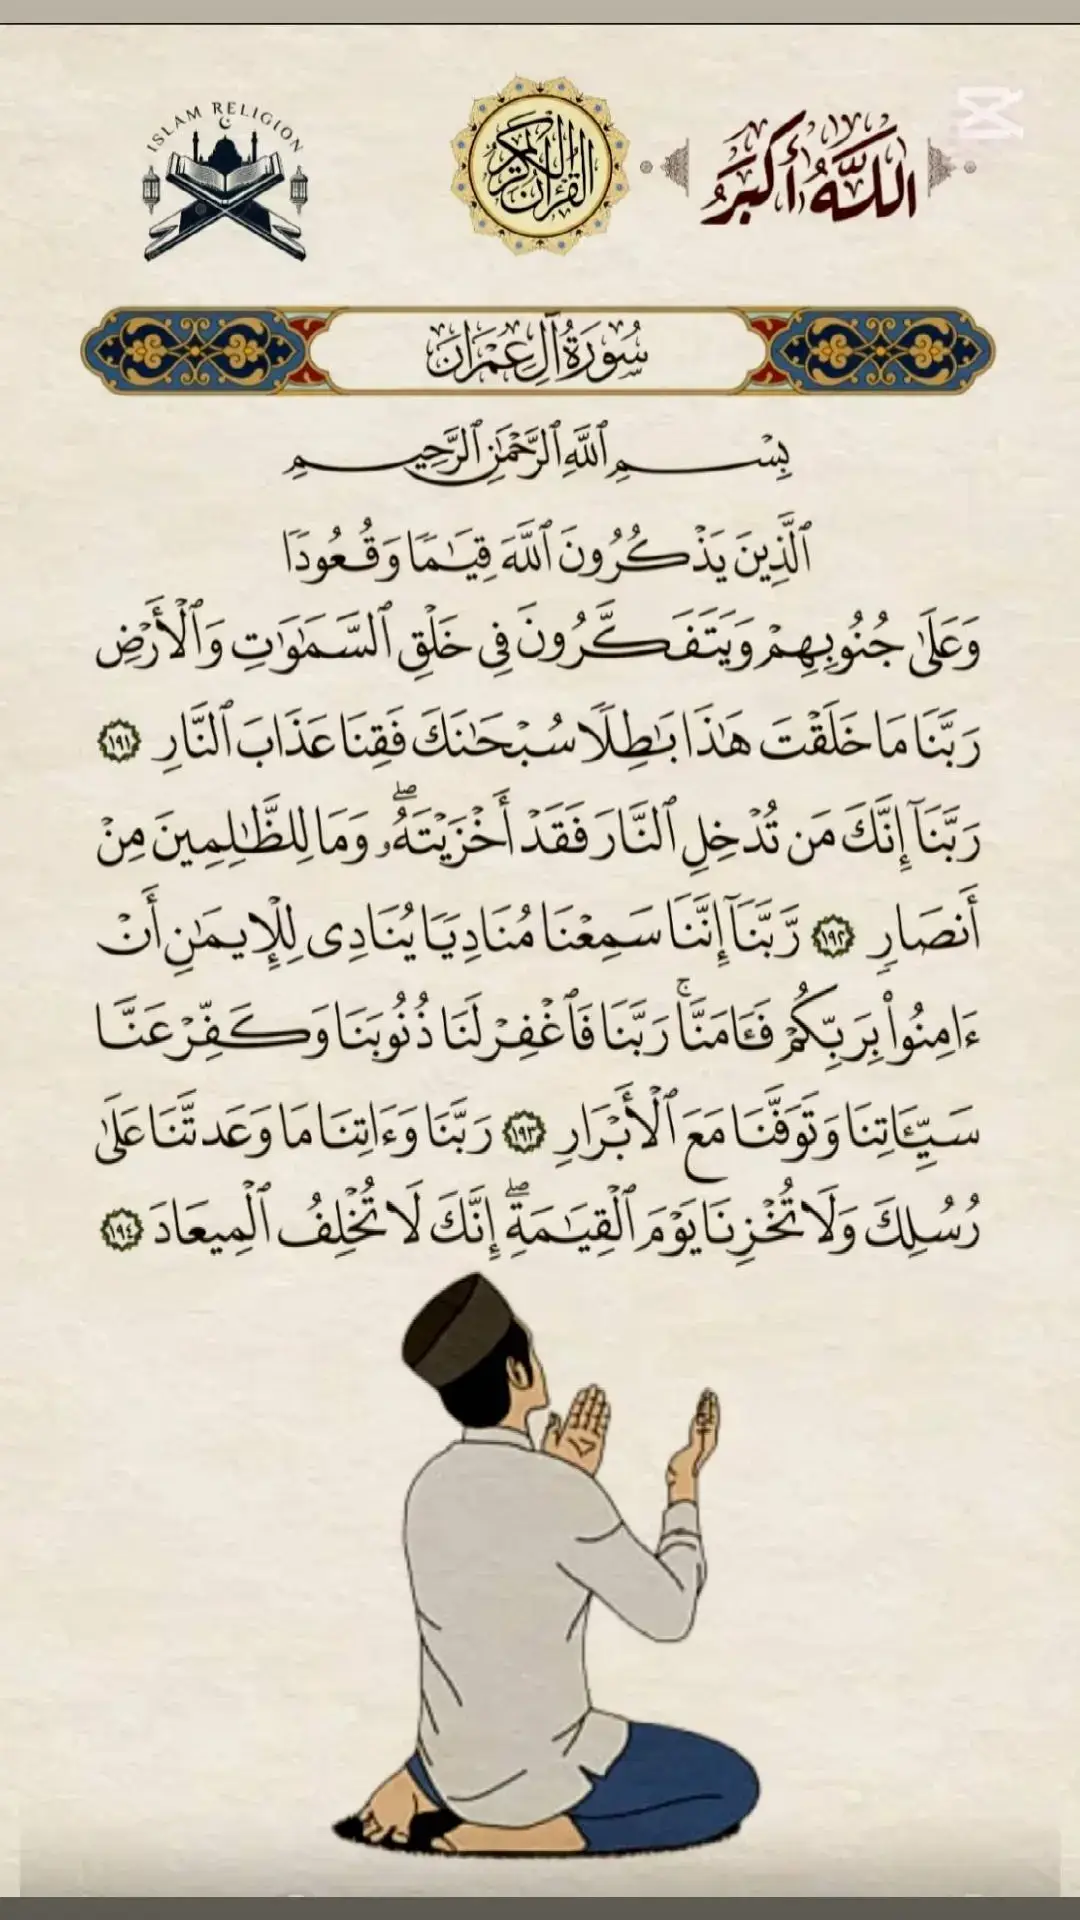 ISLAM RELIGION
القرآن الكريم
اللَّهُ أَكْبَرُ
سُورَةُ آلِ عِمْرَانَ
بِسْمِ ٱللَّهِ ٱلرَّحْمَٰنِ ٱلرَّحِيمِ
ٱلَّذِينَ يَذْكُرُونَ ٱللَّهَ قِيَٰمًا وَقُعُودًا
وَعَلَىٰ جُنُوبِهِمْ وَيَتَفَكَّرُونَ فِى خَلْقِ ٱلسَّمَٰوَٰتِ وَٱلْأَرْضِ
رَبَّنَا مَا خَلَقْتَ هَٰذَا بَٰطِلًا سُبْحَٰنَكَ فَقِنَا عَذَابَ ٱلنَّارِ ١٩١
رَبَّنَآ إِنَّكَ مَن تُدْخِلِ ٱلنَّارَ فَقَدْ أَخْزَيْتَهُۥۖ وَمَا لِلظَّٰلِمِينَ مِنْ
أَنصَارٍ ١٩٢ رَّبَّنَآ إِنَّنَا سَمِعْنَا مُنَادِيًا يُنَادِى لِلْإِيمَٰنِ أَنْ
ءَامِنُوا۟ بِرَبِّكُمْ فَـَٔامَنَّاۚ رَبَّنَا فَٱغْفِرْ لَنَا ذُنُوبَنَا وَكَفِّرْ عَنَّا
سَيِّـَٔاتِنَا وَتَوَفَّنَا مَعَ ٱلْأَبْرَارِ ١٩٣ رَبَّنَا وَءَاتِنَا مَا وَعَدتَّنَا عَلَىٰ
رُسُلِكَ وَلَا تُخْزِنَا يَوْمَ ٱلْقِيَٰمَةِۖ إِنَّكَ لَا تُخْلِفُ ٱلْمِيعَادَ ١٩٤